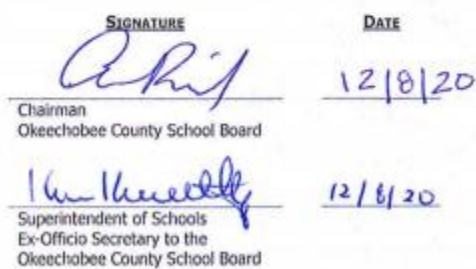 SIGNATURE DATE
12/8/20
Chairman
Okeechobee County School Board
12/8/20
Superintendent of Schools
Ex-Officio Secretary to the
Okeechobee County School Board